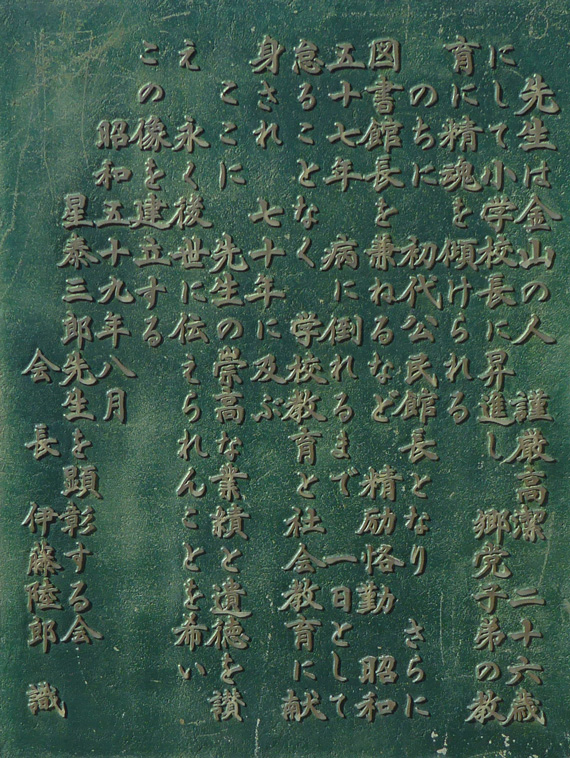 先生は金山の人　謹厳高潔　二十六歳
にして小学校長に昇進し　郷党子弟の教
育に精魂を傾けられる
のちに　初代公民館長となり　さらに
図書館長を兼ねるなど　精励恪勤　昭和
五十七年　病に倒れるまで　一日として
怠ることなく　学校教育と社会教育に献
身され　七十年に及ぶ
ここに　先生の崇高な業績と遺徳を讃
え　永く後世に伝えられんことを希い
この像を建立する
昭和五十九年八月
星泰三郎先生を顕彰する会
会　長　伊藤陸郎　識